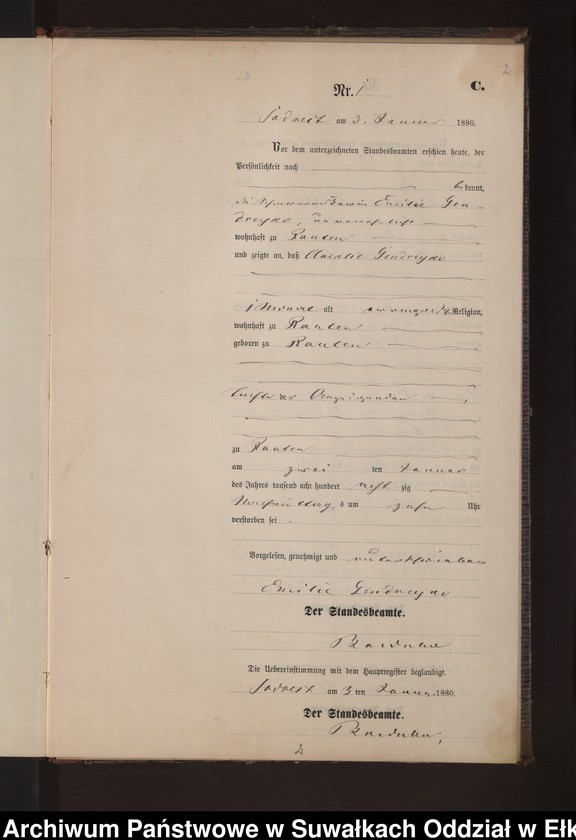 2
Nr. 1
C.
Sodrest am 3. Januar 1880.
Vor dem unterzeichneten Standesbeamten erschien heute, der
Persönlichkeit nach
bekannt,
die Emilie Gen
dreyko, unverehelicht
wohnhaft zu Ranten
und zeigte an, daß Amalie Gendreyko
1 Monat alt evangelischer Religion,
wohnhaft zu Ranten
geboren zu Ranten
Tochter der Anzeigenden
zu Ranten
am zwei ten Januar
des Jahres tausend acht hundert acht zig
Nachmittags um zehn Uhr
verstorben sei.
Vorgelesen, genehmigt und unterschrieben
Emilie Gendreyko
Der Standesbeamte.
Die Uebereinstimmung mit dem Hauptregister beglaubigt.
Sodrest am 3 ten Januar 1880.
Der Standesbeamte.
2
Archiwum Państwowe w Suwałkach Oddział w Ełk